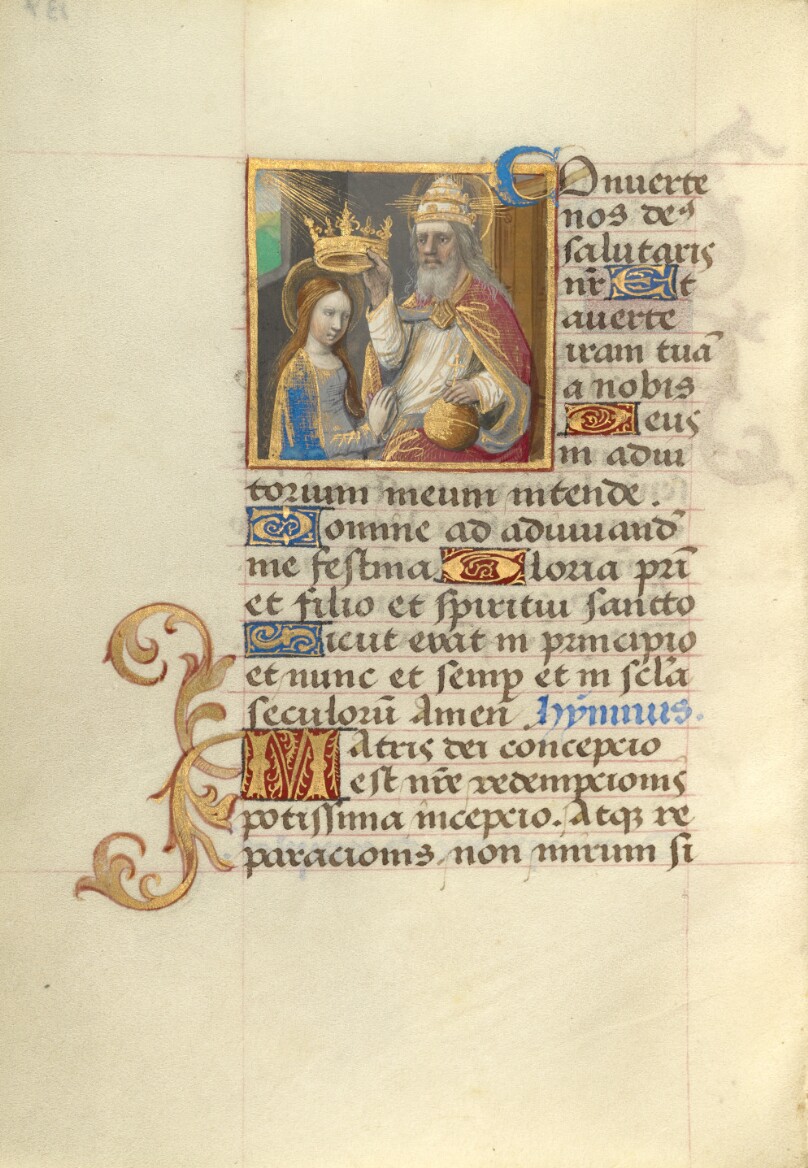 Conuerte
nos de⁹
salutaris
nr̄ Et
auerte
iram tuā
a nobis
Deus
in adiu
torium meum intende.
Domine ad adiuuand̄
me festina. Gloria pr̄i
et filio et spiritui sancto
Sicut erat in principio
et nunc et semp̱ et in sc̄la
seculorū Amen hỹmnus.
Matris dei concepcio
est nr̄e redempcionis
potissima incepcio. Atqꝫ re
paracionis. non mirum si